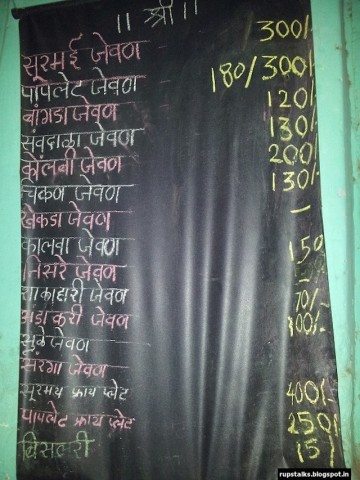 ॥ श्री ॥
सूरमई जेवण 300/-
पापलेट जेवण 180/300/-
बांगडा जेवण 120/-
सवंदाळा जेवण 130/-
कोलबी जेवण 200/-
चिकण जेवण 130/-
खेकडा जेवण —
कालवा जेवण 150
तिसरे जेवण
शाकाहारी जेवण 70/-
अंडा करी जेवण 100/-
सुके जेवण
सरंगा जेवण
सूरमय फ्राय प्लेट 400/-
पापलेट फ्राय प्लेट 250/-
बिसलरी 15/
rupstalks.blogspot.in